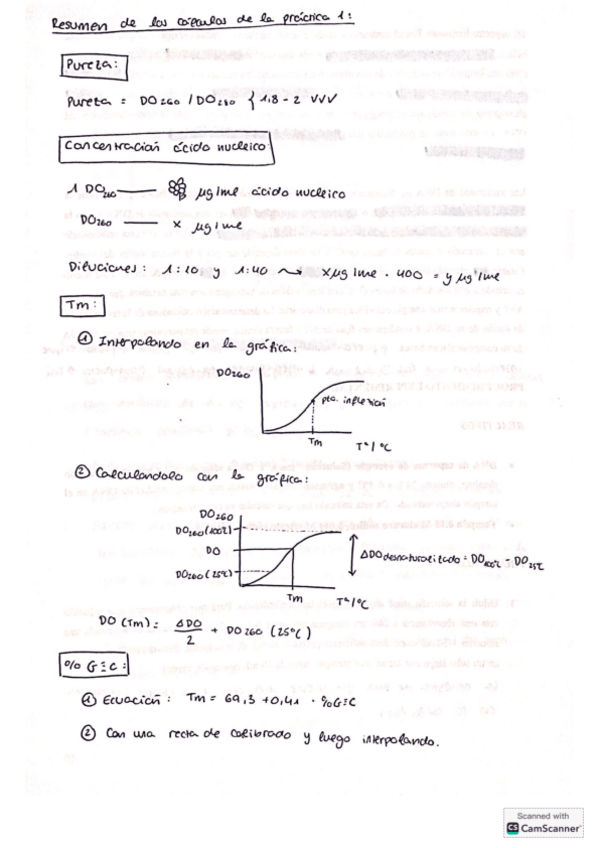 Resumen de los cálculos de la práctica 1:
Pureza:
Pureza = DO260 / DO280 { 1,8 - 2 VVV
Concentración ácido nucleico:
1 DO260 —— µg/ml ácido nucleico
DO260 —— x µg/ml
Diluciones: 1:10 y 1:40 ⇝ x µg/ml · 400 = y µg/ml
Tm:
① Interpolando en la gráfica:
DO260
pto. inflexión
Tm
Tª/ºC
② Calculandolo con la gráfica:
DO260
DO260(100ºC)
DO
DO260(25ºC)
ΔDO desnaturalizado = DO100ºC - DO25ºC
Tm
Tª/ºC
DO (Tm) = ΔDO/2 + DO260 (25ºC)
% G≡C:
① Ecuación: Tm = 69,3 + 0,41 · %G≡C
② Con una recta de calibrado y luego interpolando.
Scanned with
CS CamScanner